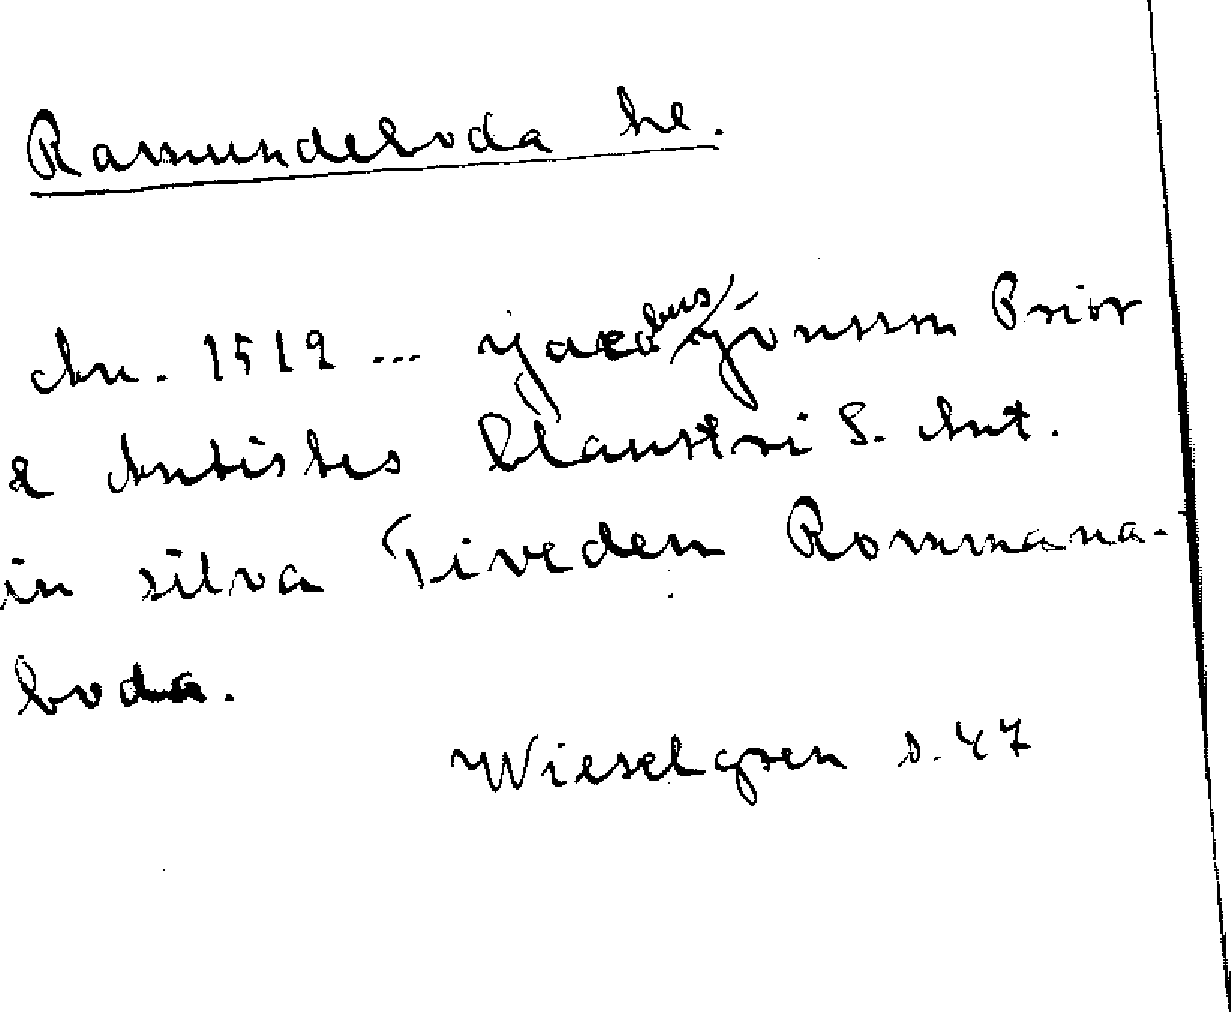 Ramundeboda kl.
An. 1512 ... Jacobus Jönsson Prior
& Antistes Claustri S. Ant.
in silva Tiveden Rommana-
boda.
Wieselgren s. 47